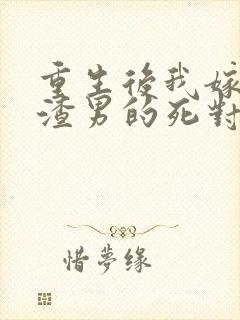 重生後我嫁
渣男的死對
惜夢缘